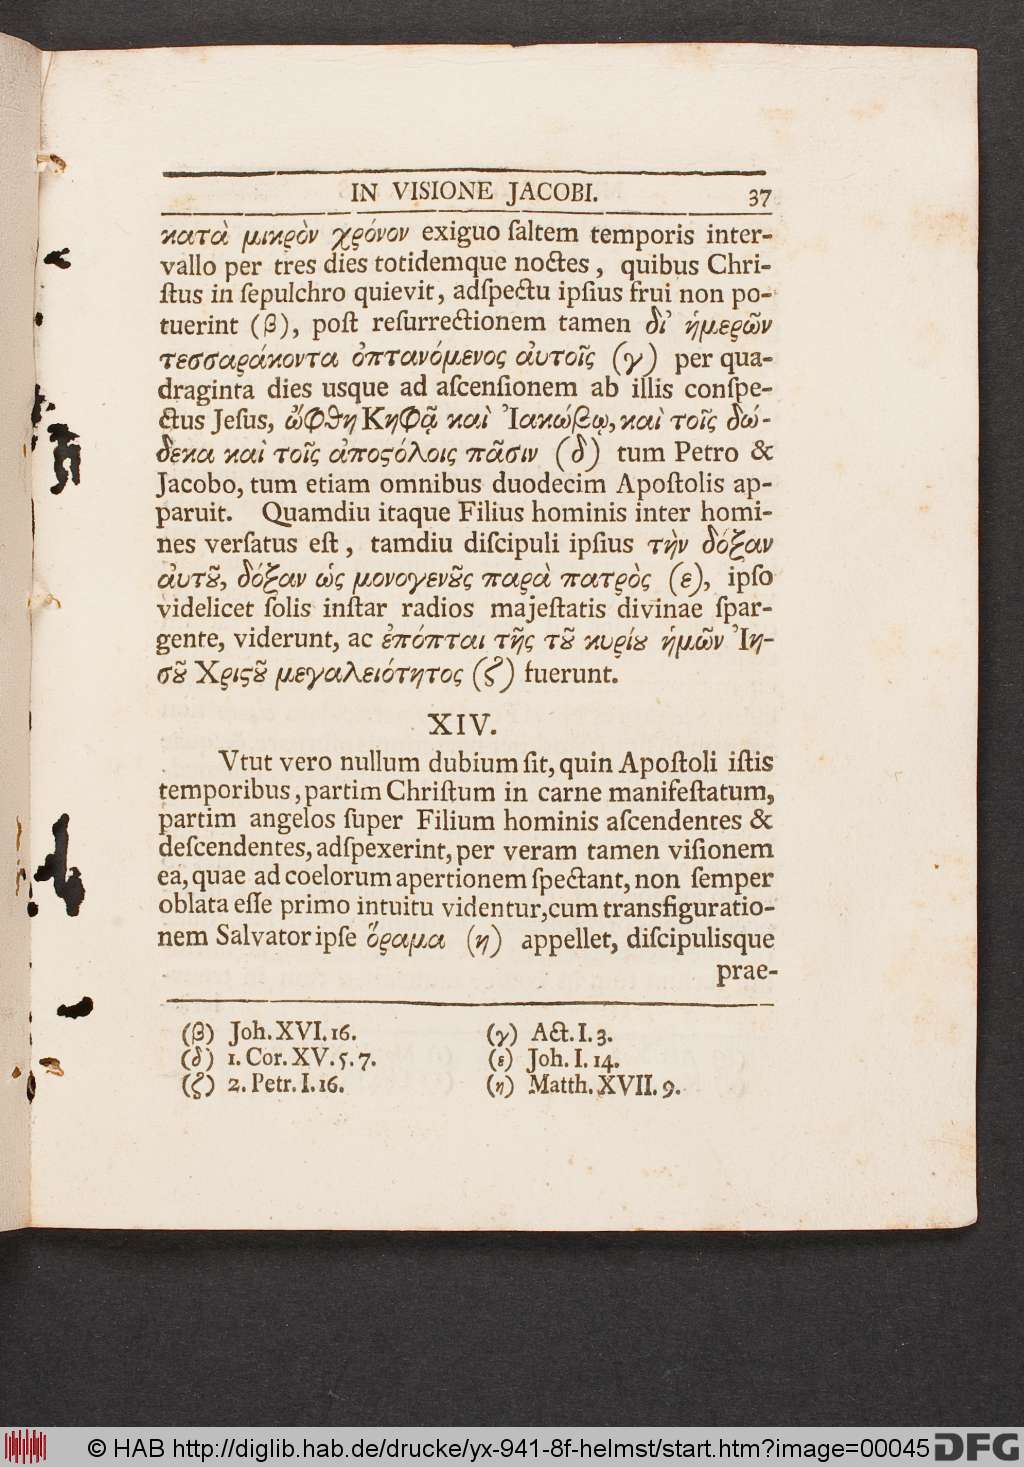 IN VISIONE JACOBI. 37
κατὰ μικρὸν χρόνον exiguo ſaltem temporis inter-
vallo per tres dies totidemque noctes, quibus Chri-
ſtus in ſepulchro quievit, adſpectu ipſius frui non po-
tuerint (β), poſt reſurrectionem tamen δι᾽ ἡμερῶν
τεσσαράκοντα ὀπτανόμενος ἀυτοῖς (γ) per qua-
draginta dies usque ad aſcenſionem ab illis conſpe-
ctus Jeſus, ὤφθη Κηφᾷ καὶ Ἰακώβῳ, καὶ τοῖς δώ-
δεκα καὶ τοῖς ἀποϛόλοις πᾶσιν (δ) tum Petro &
Jacobo, tum etiam omnibus duodecim Apoſtolis ap-
paruit. Quamdiu itaque Filius hominis inter homi-
nes verſatus eſt, tamdiu diſcipuli ipſius τὴν δόξαν
ἀυτȣ͂, δόξαν ὡς μονογενȣ͂ς παρὰ πατρὸς (ε), ipſo
videlicet ſolis inſtar radios majeſtatis divinae ſpar-
gente, viderunt, ac ἐπόπται τῆς τȣ͂ κυρίȣ ἡμῶν Ἰη-
σȣ͂ Χριϛȣ͂ μεγαλειότητος (ζ) fuerunt.
XIV.
Vtut vero nullum dubium ſit, quin Apoſtoli iſtis
temporibus, partim Chriſtum in carne manifeſtatum,
partim angelos ſuper Filium hominis aſcendentes &
deſcendentes, adſpexerint, per veram tamen viſionem
ea, quae ad coelorum apertionem ſpectant, non ſemper
oblata eſſe primo intuitu videntur, cum transfiguratio-
nem Salvator ipſe ὅραμα (η) appellet, diſcipulisque
prae-
(β) Joh. XVI. 16. (γ) Act. I. 3.
(δ) 1. Cor. XV. 5. 7. (ε) Joh. I. 14.
(ζ) 2. Petr. I. 16. (η) Matth. XVII. 9.
© HAB http://diglib.hab.de/drucke/yx-941-8f-helmst/start.htm?image=00045 DFG